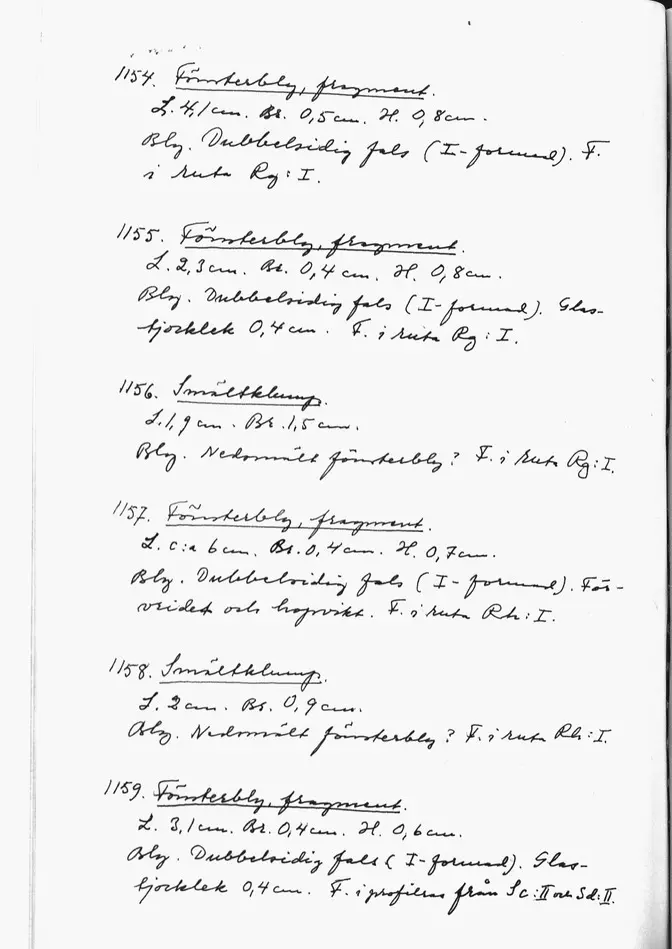 1154. Fönsterbly, fragment.
L. 4,1 cm. Br. 0,5 cm. H. 0,8 cm.
Bly. Dubbelsidig fals (I-formad). F.
i ruta Rg:I.
1155. Fönsterbly, fragment.
L. 2,3 cm. Br. 0,4 cm. H. 0,8 cm.
Bly. Dubbelsidig fals (I-formad). Glas-
tjocklek 0,4 cm. F. i ruta Rg:I.
1156. Smältklump.
L. 1,9 cm. Br. 1,5 cm.
Bly. Nedsmält fönsterbly? F. i ruta Rg:I.
1157. Fönsterbly, fragment.
L. c:a 6 cm. Br. 0,4 cm. H. 0,7 cm.
Bly. Dubbelsidig fals (I-formad). För-
vridet och hopvikt. F. i ruta Rh:I.
1158. Smältklump.
L. 2 cm. Br. 0,9 cm.
Bly. Nedsmält fönsterbly? F. i ruta Rh:I.
1159. Fönsterbly, fragment.
L. 3,1 cm. Br. 0,4 cm. H. 0,6 cm.
Bly. Dubbelsidig fals (I-formad). Glas-
tjocklek 0,4 cm. F. i profilras från Sc:II och Sd:II.